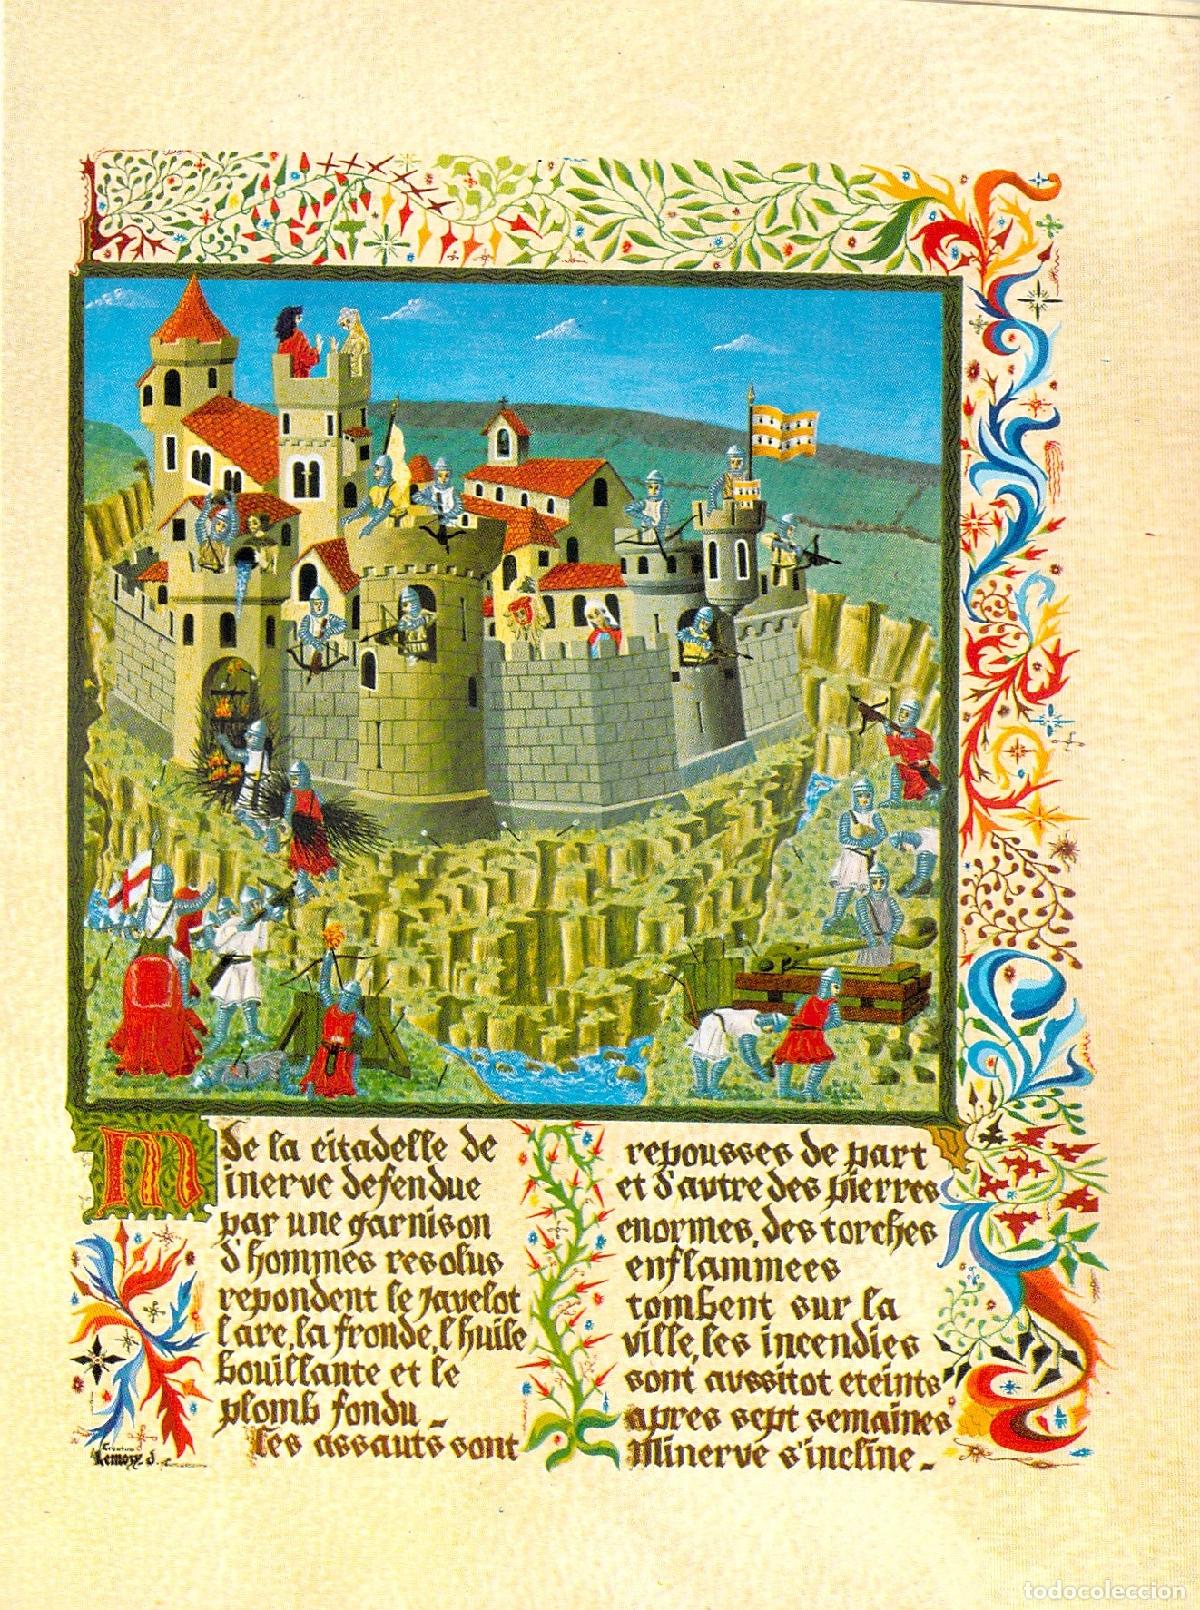 De la citadelle de
Minerve defendue
par une garnison
d'hommes resolus
repondent le javelot
l'arc, la fronde, l'huile
bouillante et le
plomb fondu _
les assauts sont
repousses de part
et d'autre des pierres
enormes, des torches
enflammees
tombent sur la
ville, les incendies
sont aussitot eteints
apres sept semaines
Minerve s'incline _
todocoleccion